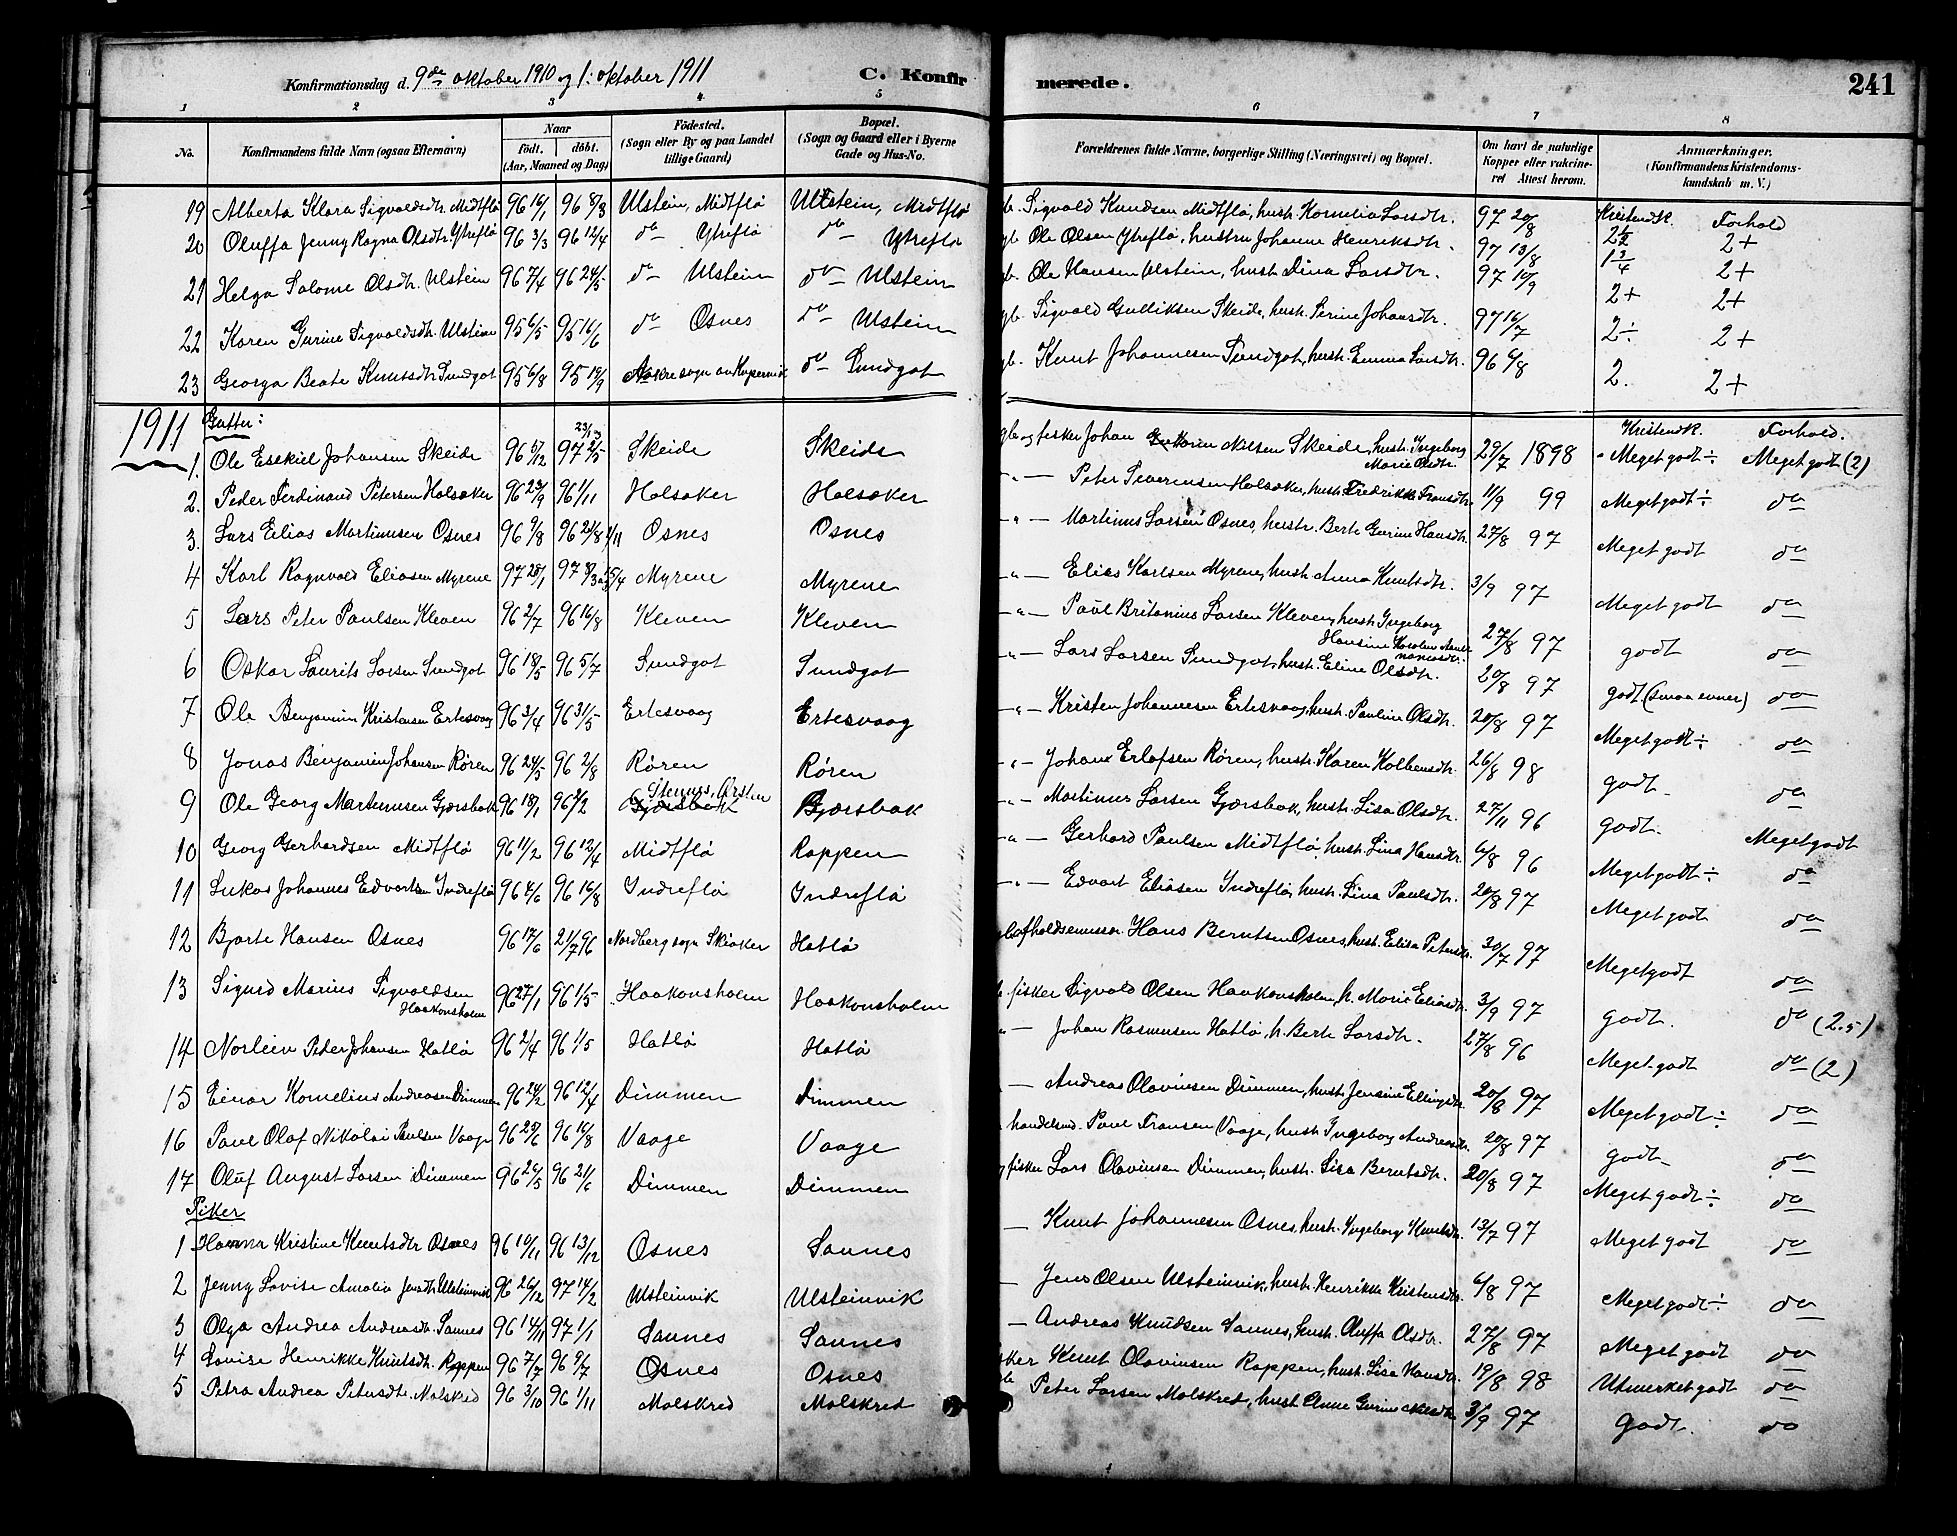 Konfirmationsdag d. 9de oktober 1910 og 1. oktober 1911
C. Konfir
merede.
241
1 2 3 4 5 6 7 8
No.
Konfirmandens fulde Navn (ogsaa Efternavn)
Naar
født. døbt.
(Aar, Maaned og Dag)
Fødested.
(Sogn eller By og paa Landet
tillige Gaard)
Bopæl.
(Sogn og Gaard eller i Byerne
Gade og Hus-No.
Forældrenes fulde Navne, borgerlige Stilling (Næringsvei) og Bopæl.
Om havt de naturlige
Kopper eller vakcine-
ret Attest herom.
Anmærkninger.
(Konfirmandens Kristendoms-
kundskab m. V.)
Kristendk. Forhold
19 Alberta Klara Sigvaldsdtr. Midtflø 96 16/1 96 8/3 Ulstein, Midtflø Ulstein, Midtflø gb. Sigvald Knudsen Midtflø, hustr. Kornelia Larsdtr. 97 20/8 2½ 2+
20 Oluffa Jenny Ragna Olsdtr. Ytreflø 96 3/3 96 12/4 do Ytreflø do Ytreflø gb. Ole Olsen Ytreflø, hustru Johanne Henriksdtr. 97 13/8 1¾ 2+
21 Helga Salome Olsdtr. Ulstein 96 7/4 96 24/5 do Ulstein do Ulstein gb. Ole Hansen Ulstein, hustr. Dina Larsdtr. 97 10/9 2+ 2+
22 Karen Gurine Sigvaldsdtr. Ulstein 95 6/5 95 16/6 do Osnes do Ulstein gb. Sigvald Gulliksen Skeide, hustr. Serine Johansdtr. 97 16/7 2÷ 2+
23 Georga Beate Knutsdtr. Sundgot 95 6/8 95 19/9 do Sundgot gb. Knut Johannesen Sundgot, hustr. Emma Larsdtr. 96 6/8 2. 2+
1911 Gutter: Kristendk. Forhold.
1. Ole Esekiel Johansen Skeide 96 5/12 97 2/5 Skeide Skeide gb. og fisker Johan Nilsen Skeide, hustr. Ingeborg Marie Olsdtr. 29/7 1898 Meget godt ÷ Meget godt (2)
2. Peder Ferdinand Petersen Holsaker 96 29/9 96 1/11 Holsaker Holsaker -"- Peter Severinsen Holsaker, hustr. Fredrikke Fransdtr. 11/9 99 Meget godt ÷ do
3. Lars Elias Martinusen Osnes 96 9/8 Osnes Osnes -"- Martinus Larsen Osnes, hustr. Berte Gurine Hansdtr. 27/8 97 Meget godt do
4 Karl Ragnvald Eliasen Myrene 97 28/1 Myrene Myrene -"- Elias Karlsen Myrene, hustr. Anna Knutsdtr. 3/9 97 Meget godt do
5 Lars Peter Paulsen Kleven 96 2/7 96 16/8 Kleven Kleven -"- Paul Britanius Larsen Kleven, hustr. Ingeborg Hansine 27/8 97 godt do
6 Oskar Laurits Larsen Sundgot 96 18/5 96 5/7 Sundgot Sundgot -"- Lars Larsen Sundgot, hustr. Eline Olsdtr. 20/8 97 godt (smaa evner) do
7 Ole Benjamin Kristensen Ertesvaag 96 3/4 96 31/5 Ertesvaag Ertesvaag -"- Kristen Johannesen Ertesvaag, hustr. Pauline Olsdtr. 20/8 97 Meget godt ÷ do
8 Jonas Benjamin Johansen Røren 96 24/5 96 2/8 Røren Røren -"- Johan Erlofsen Røren, hustr. Karen Kolbensdtr. 26/8 98 godt do
9 Ole Georg Martinusen Gjærsbak 96 18/1 96 2/2 Ørsten Bjærsbak -"- Martinus Larsen Gjærsbak, hustr. Lisa Olsdtr. 27/11 96 godt. Meget godt
10 Georg Gerhardsen Midtflø 96 11/2 96 12/4 Midtflø Rappen -"- Gerhard Paulsen Midtflø, hustr. Lina Hansdtr. 6/8 96 Meget godt ÷ do
11 Lukas Johannes Edvartsen Indreflø 96 4/6 96 16/8 Indreflø Indreflø -"- Edvart Eliasen Indreflø, hustr. Lina Paulsdtr. 20/8 97 Meget godt do
12 Bjarte Hansen Osnes 96 17/6 2/7 96 Nordberg sogn Skiaker Hatlø afholdsemissær Hans Berntsen Osnes, hustr. Elisa Petersdtr. 30/7 97 Meget godt do
13 Sigurd Marius Sigvaldsen Haakonsholm 96 27/1 96 1/5 Haakonsholm Haakonsholm fisker Sigvald Olsen Haakonsholm, h. Marie Eliasdtr. 3/9 97 godt. do (2.5)
14 Norleiv Peder Johansen Hatlø 96 2/4 96 1/5 Hatlø Hatlø -"- Johan Rasmusen Hatlø, h. Berte Larsdtr. 27/8 96 Meget godt do (2)
15 Einar Kornelius Andreasen Dimmen 96 24/2 96 12/4 Dimmen Dimmen - Andreas Olavinsen Dimmen, hustr. Jensine Ellingsdtr. 20/8 97 Meget godt ÷ do
16 Paul Olaf Nikolai Paulsen Vaage 96 29/6 96 16/8 Vaage Vaage handelsm. Paul Fransen Vaage, hustr. Ingeborg Andreasdtr. 20/8 97 godt do
17 Oluf August Larsen Dimmen 96 26/5 96 21/6 Dimmen Dimmen fisker Lars Olavinsen Dimmen, hustr. Lisa Berntsdtr. 20/8 97 Meget godt ÷ do
Piker
1 Hanna Kristine Knutsdtr Osnes 96 10/11 96 13/12 Osnes Sannes - Knut Johannesen Osnes, hustr. Ingeborg Knutsdtr. 13/7 97 Meget godt do
2 Jenny Lovise Amalia Jensdtr Ulsteinvik 96 26/12 97 14/2 Ulsteinvik Ulsteinvik - Jens Olsen Ulsteinvik, hustr. Henrikke Kristensdtr. 6/8 97 Meget godt ÷ do
3 Olga Andrea Andreasdtr. Sannes 96 14/11 97 1/1 Sannes Sannes - Andreas Knudsen Sannes, hustr. Oluffa Olsdtr. 27/8 97 Meget godt do
4 Lovise Henrikke Knutsdtr. Rappen 96 7/7 96 9/7 Osnes Osnes Knut Olavinsen Rappen, hustr. Lisa Hansdtr. 19/8 98 Utmerket godt do
5 Petra Andrea Petersdtr. Molskred 96 3/10 96 1/11 Molskred Molskred Peter Larsen Molskred, hustr. Anne Gurine Nilsdtr. 3/9 97 godt. do